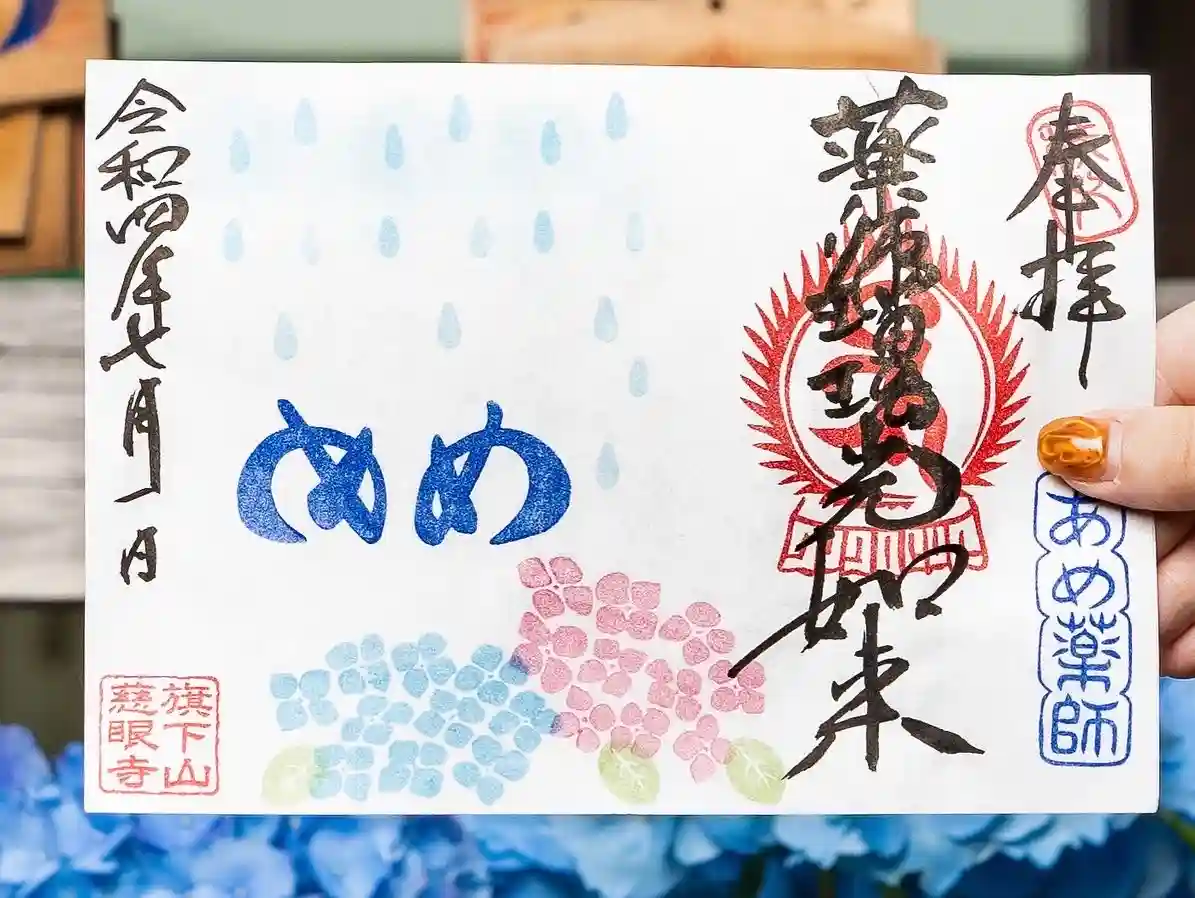 奉拝
あめ薬師
薬師瑠璃光如来
めめ
令和四年七月一日
旗下山
慈眼寺